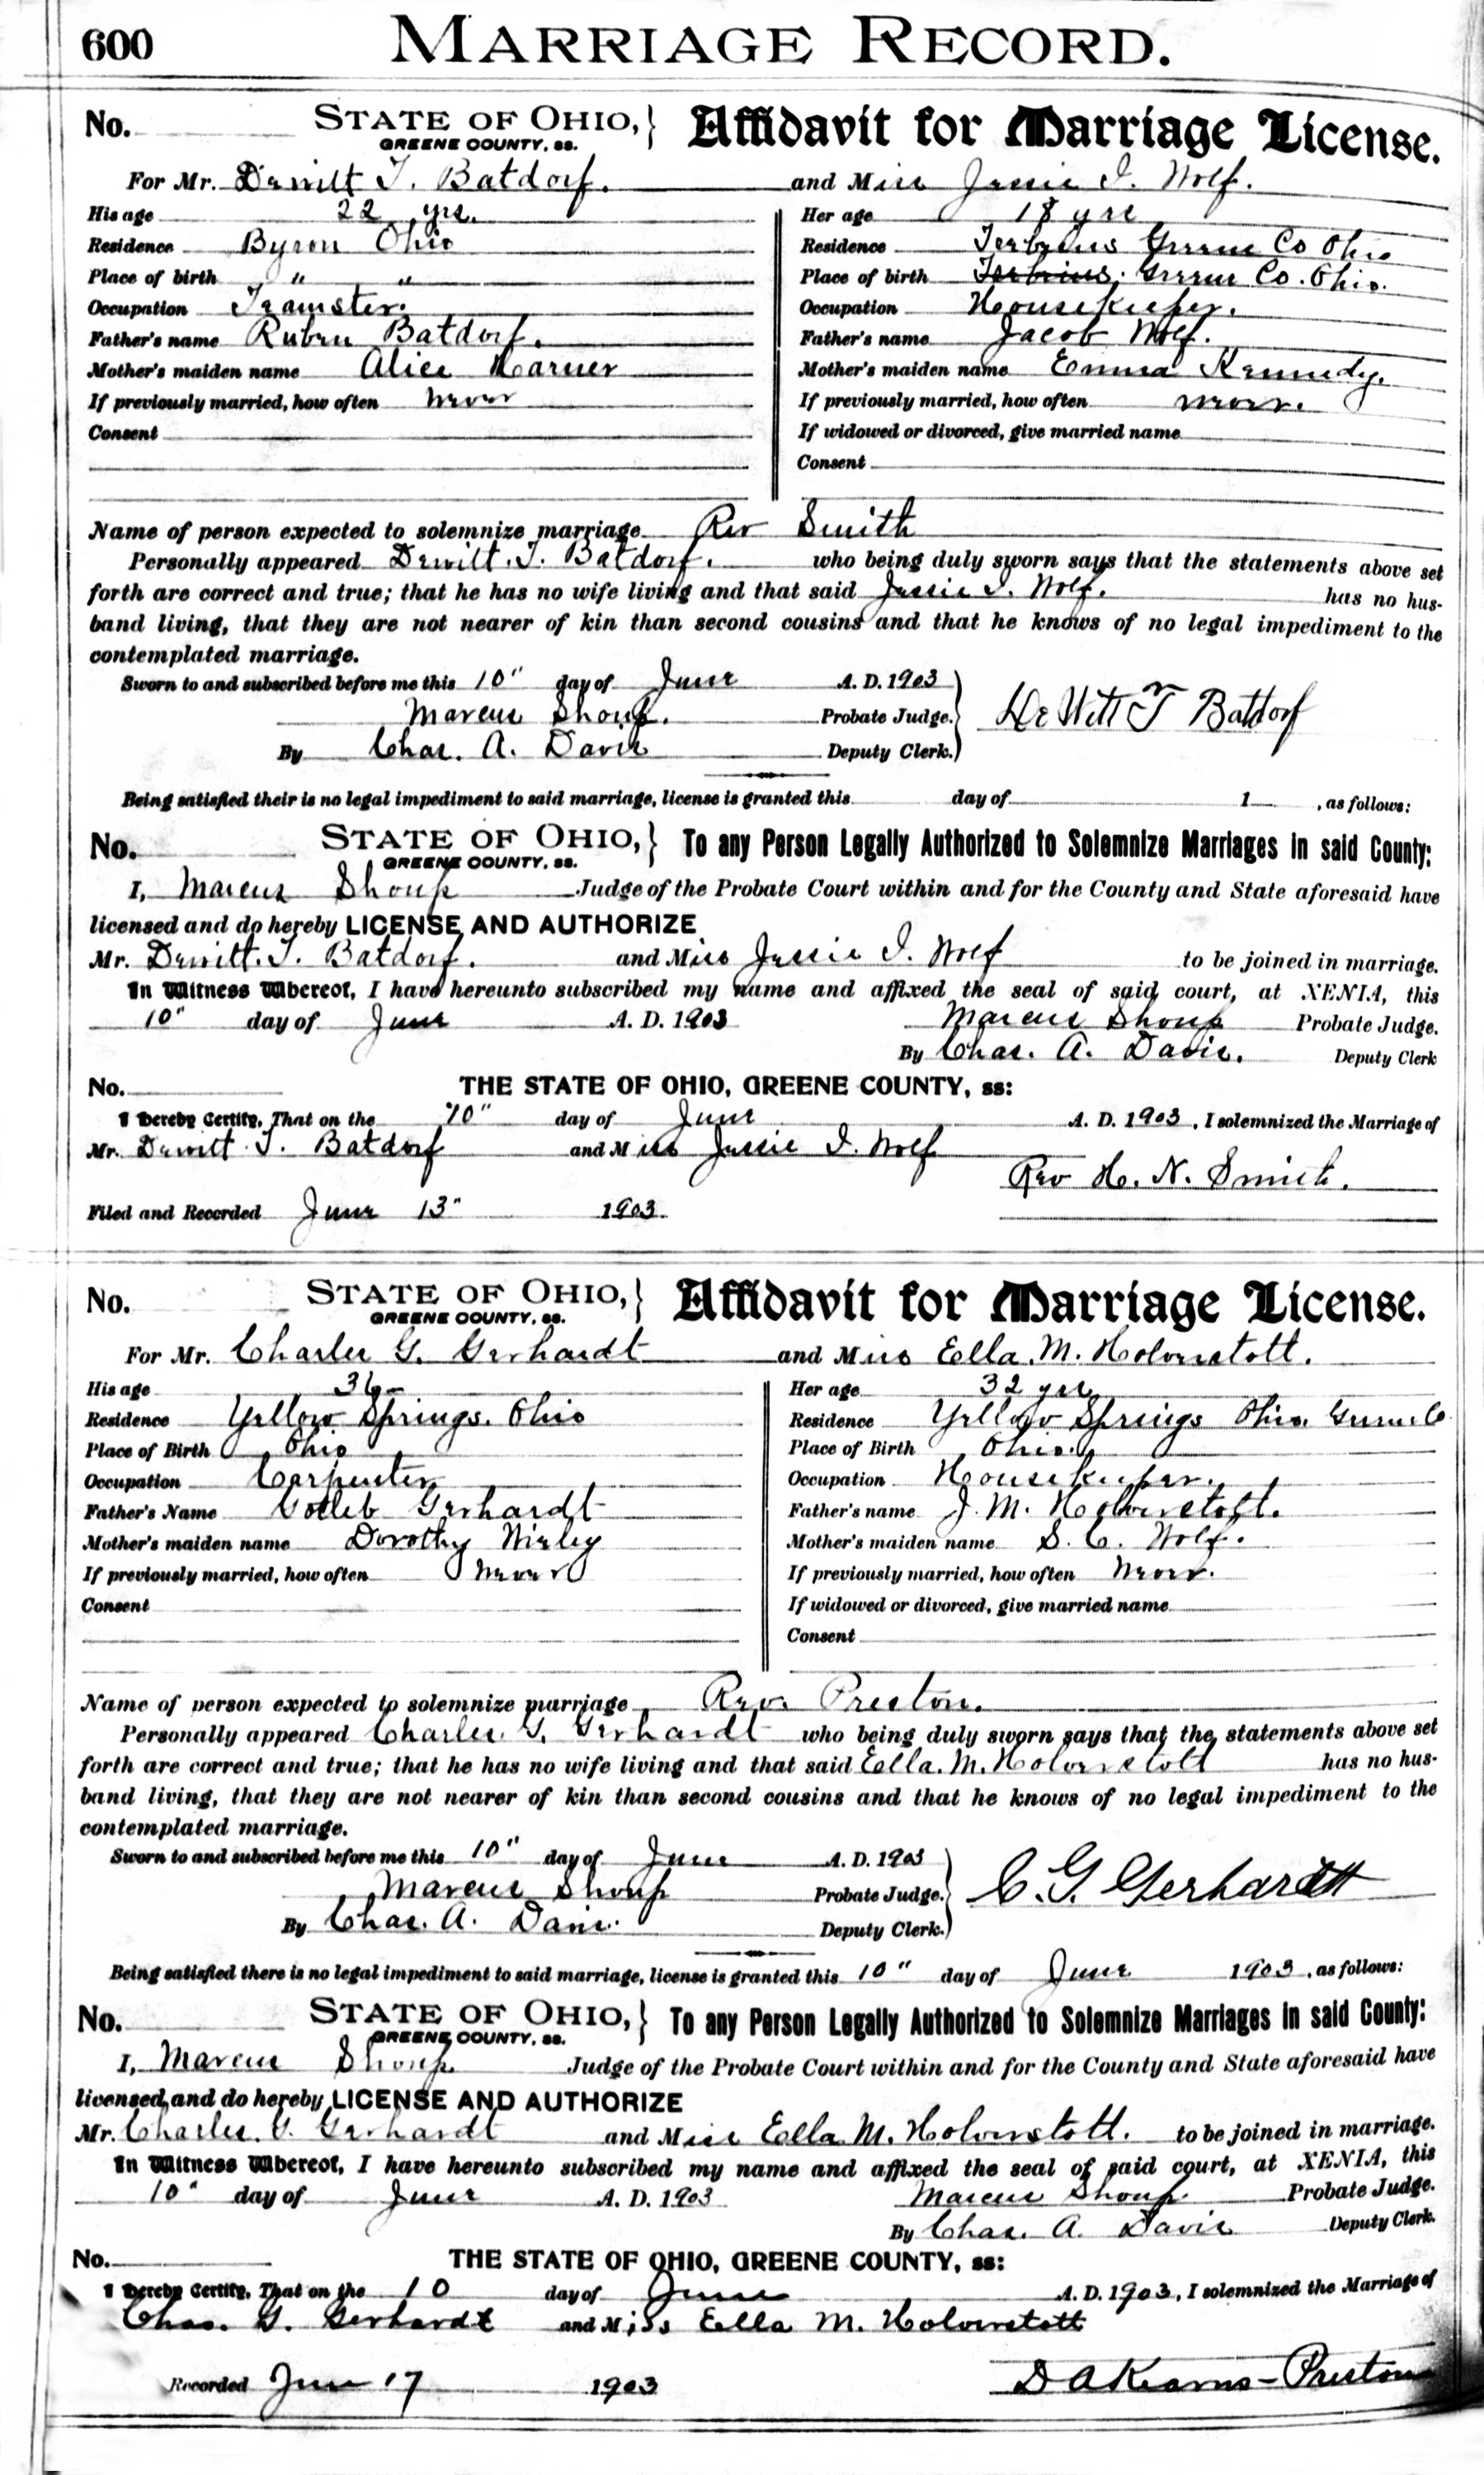 600 MARRIAGE RECORD.
No. STATE OF OHIO, GREENE COUNTY, ss. } Affidavit for Marriage License.
For Mr. Dewitt T. Batdorf. and Miss Jessie I. Wolf.
His age 22 yrs. Her age 18 yrs
Residence Byron Ohio Residence Greene Co Ohio
Place of birth " " Place of birth Greene Co. Ohio.
Occupation Teamster. Occupation Housekeeper.
Father's name Ruben Batdorf. Father's name Jacob Wolf.
Mother's maiden name Alice Harner Mother's maiden name Emma Kennedy.
If previously married, how often never If previously married, how often never.
Consent If widowed or divorced, give married name
Consent
Name of person expected to solemnize marriage Rev Smith
Personally appeared Dewitt. T. Batdorf. who being duly sworn says that the statements above set
forth are correct and true; that he has no wife living and that said Jessie I. Wolf. has no hus-
band living, that they are not nearer of kin than second cousins and that he knows of no legal impediment to the
contemplated marriage.
Sworn to and subscribed before me this 10" day of June A. D. 1903
Marcus Shoup. Probate Judge. De Witt T Batdorf
By Chas. A. Davis Deputy Clerk.
Being satisfied their is no legal impediment to said marriage, license is granted this day of 1 , as follows:
No. STATE OF OHIO, GREENE COUNTY, ss. } To any Person Legally Authorized to Solemnize Marriages in said County:
I, Marcus Shoup Judge of the Probate Court within and for the County and State aforesaid have
licensed and do hereby LICENSE AND AUTHORIZE
Mr. Dewitt. T. Batdorf. and Miss Jessie I. Wolf to be joined in marriage.
In Witness Whereof, I have hereunto subscribed my name and affixed the seal of said court, at XENIA, this
10" day of June A. D. 1903 Marcus Shoup Probate Judge.
By Chas. A. Davis. Deputy Clerk
No. THE STATE OF OHIO, GREENE COUNTY, ss:
I Hereby Certify, That on the 10" day of June A. D. 1903, I solemnized the Marriage of
Mr. Dewitt T. Batdorf and Miss Jessie I. Wolf
Rev H. N. Smith.
Filed and Recorded June 13" 1903.
No. STATE OF OHIO, GREENE COUNTY, ss. } Affidavit for Marriage License.
For Mr. Charles G. Gerhardt and Miss Ella. M. Holverstott.
His age 36 Her age 32 yrs
Residence Yellow Springs. Ohio Residence Yellow Springs Ohio. Greene Co
Place of Birth Ohio Place of Birth Ohio.
Occupation Carpenter Occupation Housekeeper.
Father's Name Gotleb Gerhardt Father's name J. M. Holverstott.
Mother's maiden name Dorothy Mother's maiden name S. C. Wolf.
If previously married, how often never If previously married, how often never.
Consent If widowed or divorced, give married name
Consent
Name of person expected to solemnize marriage Rev. Preston.
Personally appeared Charles. G. Gerhardt who being duly sworn says that the statements above set
forth are correct and true; that he has no wife living and that said Ella. M. Holverstott has no hus-
band living, that they are not nearer of kin than second cousins and that he knows of no legal impediment to the
contemplated marriage.
Sworn to and subscribed before me this 10" day of June A. D. 1903
Marcus Shoup Probate Judge. C. G. Gerhardt
By Chas. A. Davis. Deputy Clerk.
Being satisfied there is no legal impediment to said marriage, license is granted this 10" day of June 1903, as follows:
No. STATE OF OHIO, GREENE COUNTY, ss. } To any Person Legally Authorized to Solemnize Marriages in said County:
I, Marcus Shoup Judge of the Probate Court within and for the County and State aforesaid have
licensed and do hereby LICENSE AND AUTHORIZE
Mr. Charles. G. Gerhardt and Miss Ella M. Holverstott. to be joined in marriage.
In Witness Whereof, I have hereunto subscribed my name and affixed the seal of said court, at XENIA, this
10" day of June A. D. 1903 Marcus Shoup. Probate Judge.
By Chas. A. Davis Deputy Clerk.
No. THE STATE OF OHIO, GREENE COUNTY, ss:
I Hereby Certify, That on the 10 day of June A. D. 1903, I solemnized the Marriage of
Chas. G. Gerhardt and Miss Ella M. Holverstott
Recorded June 17 1903 D A Kearns-Preston